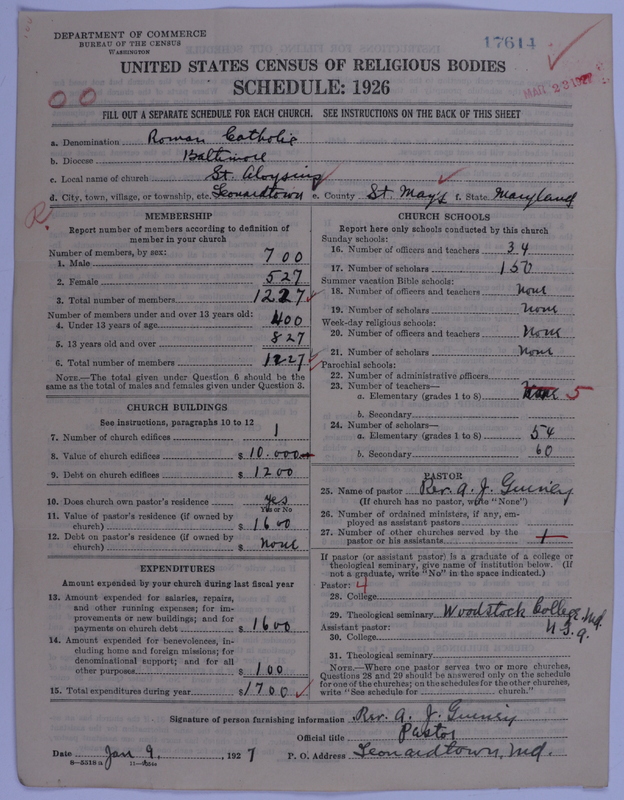 DEPARTMENT OF COMMERCE
BUREAU OF THE CENSUS
WASHINGTON
17614
UNITED STATES CENSUS OF RELIGIOUS BODIES
SCHEDULE: 1926
FILL OUT A SEPARATE SCHEDULE FOR EACH CHURCH. SEE INSTRUCTIONS ON THE BACK OF THIS SHEET
a. Denomination Roman Catholic
b. Diocese Baltimore
c. Local name of church St. Aloysius
d. City, town, village, or township, etc. Leonardtown e. County St. Mary's f. State Maryland
MEMBERSHIP
Report number of members according to definition of
member in your church
Number of members, by sex:
1. Male 700
2. Female 527
3. Total number of members 1227
Number of members under and over 13 years old:
4. Under 13 years of age 400
5. 13 years old and over 827
6. Total number of members 1227
NOTE.—The total given under Question 6 should be the
same as the total of males and females given under Question 3.
CHURCH BUILDINGS
See instructions, paragraphs 10 to 12
7. Number of church edifices 1
8. Value of church edifices $ 10.000
9. Debt on church edifices $ 1200
10. Does church own pastor's residence yes
Yes or No
11. Value of pastor's residence (if owned by
church) $ 1600
12. Debt on pastor's residence (if owned by
church) $ none
EXPENDITURES
Amount expended by your church during last fiscal year
13. Amount expended for salaries, repairs,
and other running expenses; for im-
provements or new buildings; and for
payments on church debt $ 1600
14. Amount expended for benevolences, in-
cluding home and foreign missions; for
denominational support; and for all
other purposes $ 100
15. Total expenditures during year $ 1700
CHURCH SCHOOLS
Report here only schools conducted by this church
Sunday schools:
16. Number of officers and teachers 34
17. Number of scholars 150
Summer vacation Bible schools:
18. Number of officers and teachers none
19. Number of scholars none
Week-day religious schools:
20. Number of officers and teachers None
21. Number of scholars None
Parochial schools:
22. Number of administrative officers
23. Number of teachers—
a. Elementary (grades 1 to 8) 5
b. Secondary
24. Number of scholars—
a. Elementary (grades 1 to 8) 54
b. Secondary 60
PASTOR
25. Name of pastor Rev. A. J.
(If church has no pastor, write "None")
26. Number of ordained ministers, if any, em-
ployed as assistant pastors
27. Number of other churches served by the
pastor or his assistants 1
If pastor (or assistant pastor) is a graduate of a college or
theological seminary, give name of institution below. (If
not a graduate, write "No" in the space indicated.)
Pastor: 4
28. College
29. Theological seminary Woodstock College, Md.
U.S.A.
Assistant pastor:
30. College
31. Theological seminary
NOTE.—Where one pastor serves two or more churches,
Questions 28 and 29 should be answered only on the schedule
for one of the churches; on the schedules for the other churches,
write "See schedule for church."
Signature of person furnishing information Rev. A. J.
Official title Pastor
Date Jan 9, 1927 P. O. Address Leonardtown, Md.